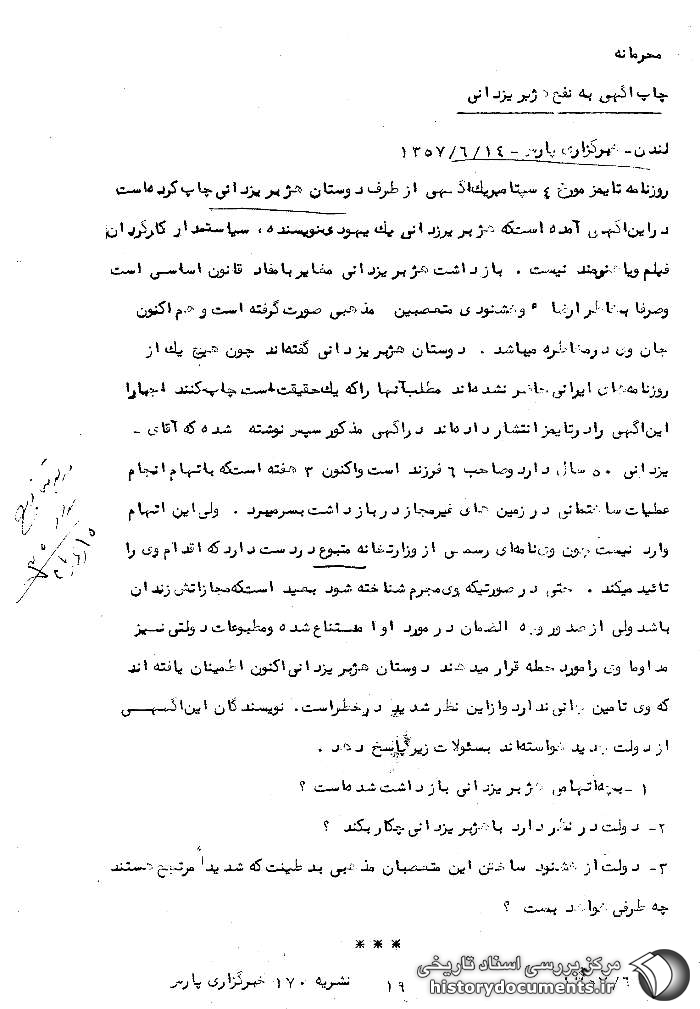 محرمانه
چاپ آگهی به نفع هژبر یزدانی
لندن - خبرگزاری پارس - ۱۳۵۷/۶/۱۴
روزنامه تایمز مورخ ۴ سپتامبر یک آگهی از طرف دوستان هژبر یزدانی چاپ کرده است
در این آگهی آمده است که هژبر یزدانی یک یهودی نویسنده ، سیاستمدار کارگردان
فیلم ویا هنرمند نیست . بازداشت هژبر یزدانی مغایر با مفاد قانون اساسی است
وصرفا بخاطر ارضاء وخشنودی متعصبین مذهبی صورت گرفته است و هم اکنون
جان وی درمخاطره میباشد . دوستان هژبر یزدانی گفته‌اند چون هیچ یک از
روزنامه‌های ایرانی حاضر نشده‌اند مطلب آنها راکه یک حقیقت است چاپ کنند اجبارا
این آگهی رادرتایمز انتشار داده‌اند درآگهی مذکور سپس نوشته شده که آقای -
یزدانی ۵۰ سال دارد وصاحب ۶ فرزند است واکنون ۳ هفته است که باتهام انجام
عملیات ساختمانی در زمین های غیرمجاز در بازداشت بسرمیبرد . ولی این اتهام
وارد نیست چون وی نامه‌ای رسمی از وزارتخانه متبوع در دست دارد که اقدام وی را
تائید میکند . حتی در صورتیکه وی مجرم شناخته شود بعید است که مجازاتش زندان
باشد ولی از صدور وجه الضمان در مورد او امتناع شده ومطبوعات دولتی نیز
مداوما وی رامورد حمله قرار میدهند دوستان هژبر یزدانی اکنون اطمینان یافته اند
که وی تامین جانی ندارد وازاین نظر شدیدا درخطراست. نویسندگان این آگهی
از دولت جدید خواسته‌اند بسئولات زیر پاسخ دهد .
۱ - بچه اتهامی هژبر یزدانی بازداشت شده است ؟
۲- دولت در نظر دارد باهژبر یزدانی چکار بکند ؟
۳- دولت از خشنود ساختن این متعصبان مذهبی بد طینت که شدیداً مرتجع هستند
چه طرفی خواهد بست ؟
***
نشریه ۱۷۰ خبرگزاری پارس ۱۹
مرکز بررسی اسناد تاریخی
historydocuments.ir